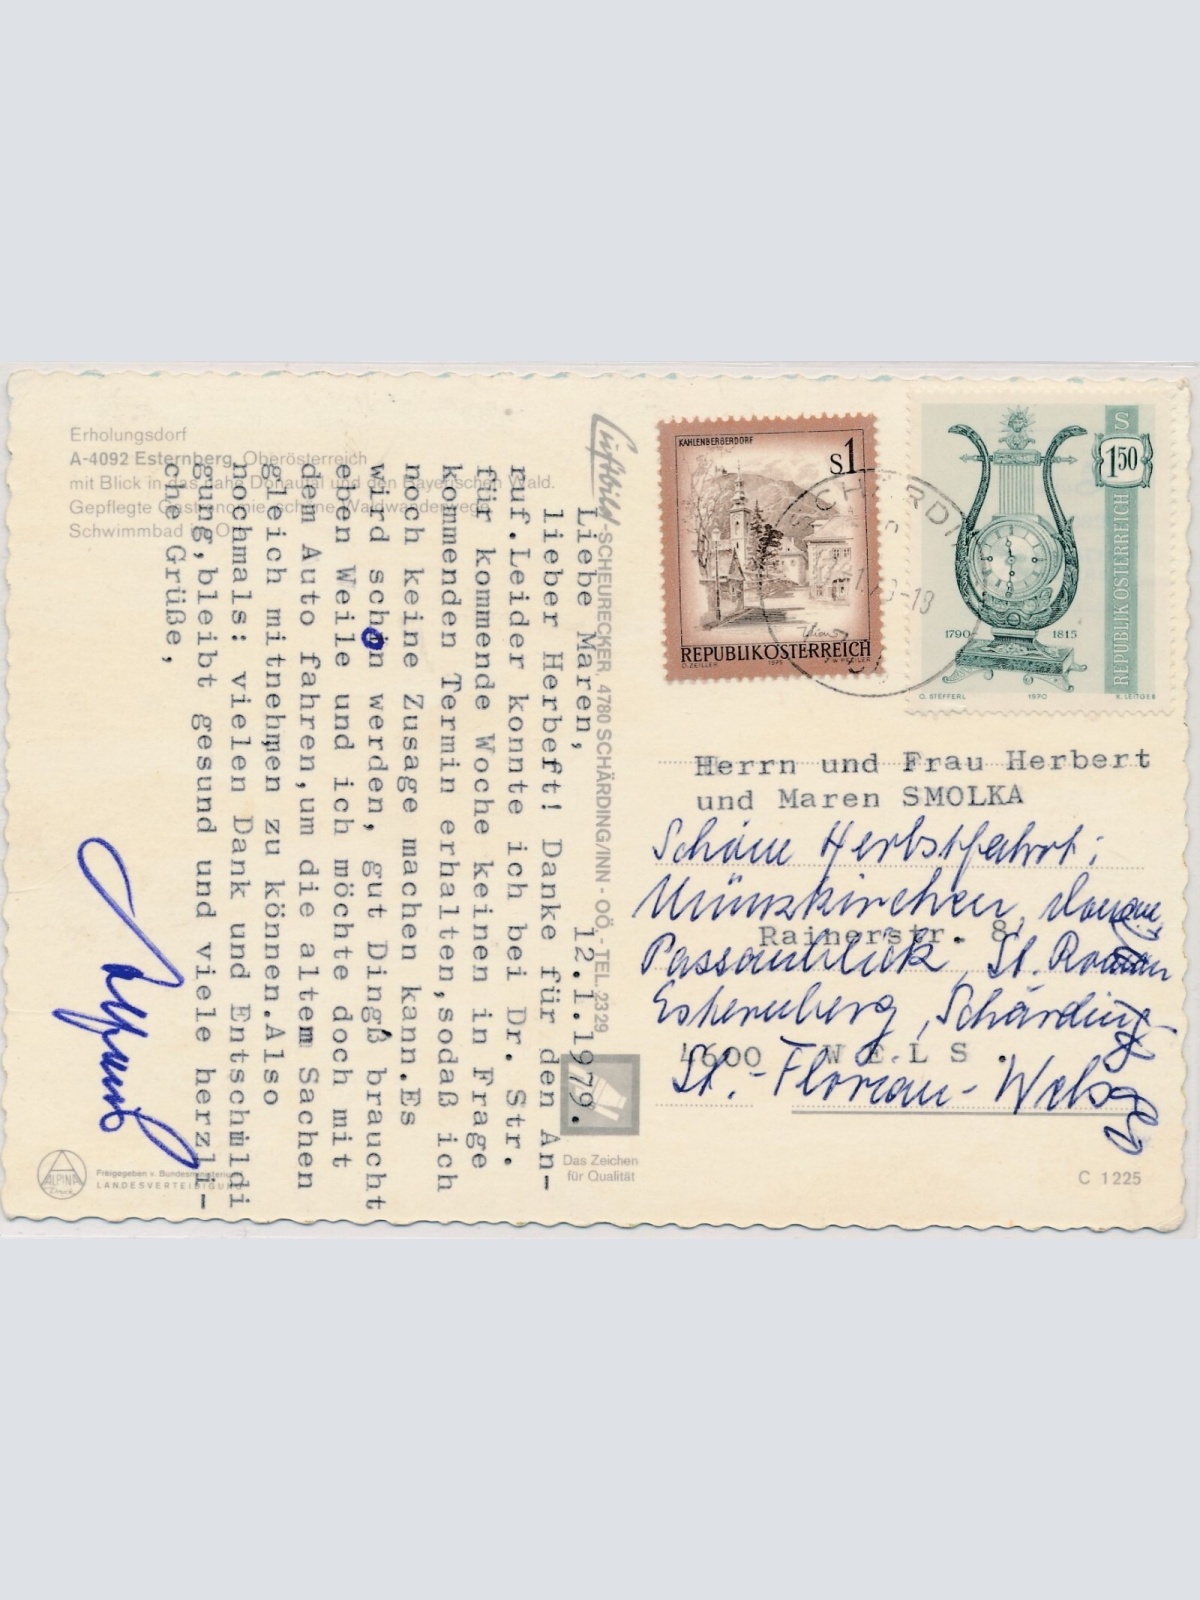 Erholungsdorf
A-4092 Esternberg, Oberösterreich
mit Blick in das nahe Donautal und den Bayerischen Wald.
Gepflegte Gastronomie, schöne Waldwanderwege
Schwimmbad im O
Luftbild-SCHEURECKER, 4780 SCHÄRDING/INN - OÖ - TEL. 2329
12.1.1979.
Liebe Maren,
lieber Herbert! Danke für den An-
ruf.Leider konnte ich bei Dr. Str.
für kommende Woche keinen in Frage
kommenden Termin erhalten,sodaß ich
noch keine Zusage machen kann.Es
wird schon werden, gut Dingß braucht
eben Weile und ich möchte doch mit
dem Auto fahren,um die altem Sachen
gleich mitnehmen zu können.Also
nochmals: vielen Dank und Entschmldi
gung,bleibt gesund und viele herzli-
che Grüße,
ALPINA
Druck
Freigegeben v. Bundesministerium
LANDESVERTEIDIGUNG
Das Zeichen
für Qualität
KAHLENBERGERDORF
S1
REPUBLIK ÖSTERREICH
O. ZEILLER 1975 W. PFEILER
S
150
REPUBLIK ÖSTERREICH
1790 1815
O. STEFFERL 1970 K. LEITGEB
SCHÄRDING
-18
Herrn und Frau Herbert
und Maren SMOLKA
Schöne Herbstfahrt:
Münzkirchen,
Rainerstr. 8
Passaublick, St. Roman
Esternberg, Schärding-
4600 W E L S .
St.-Florian-Wels
C 1225